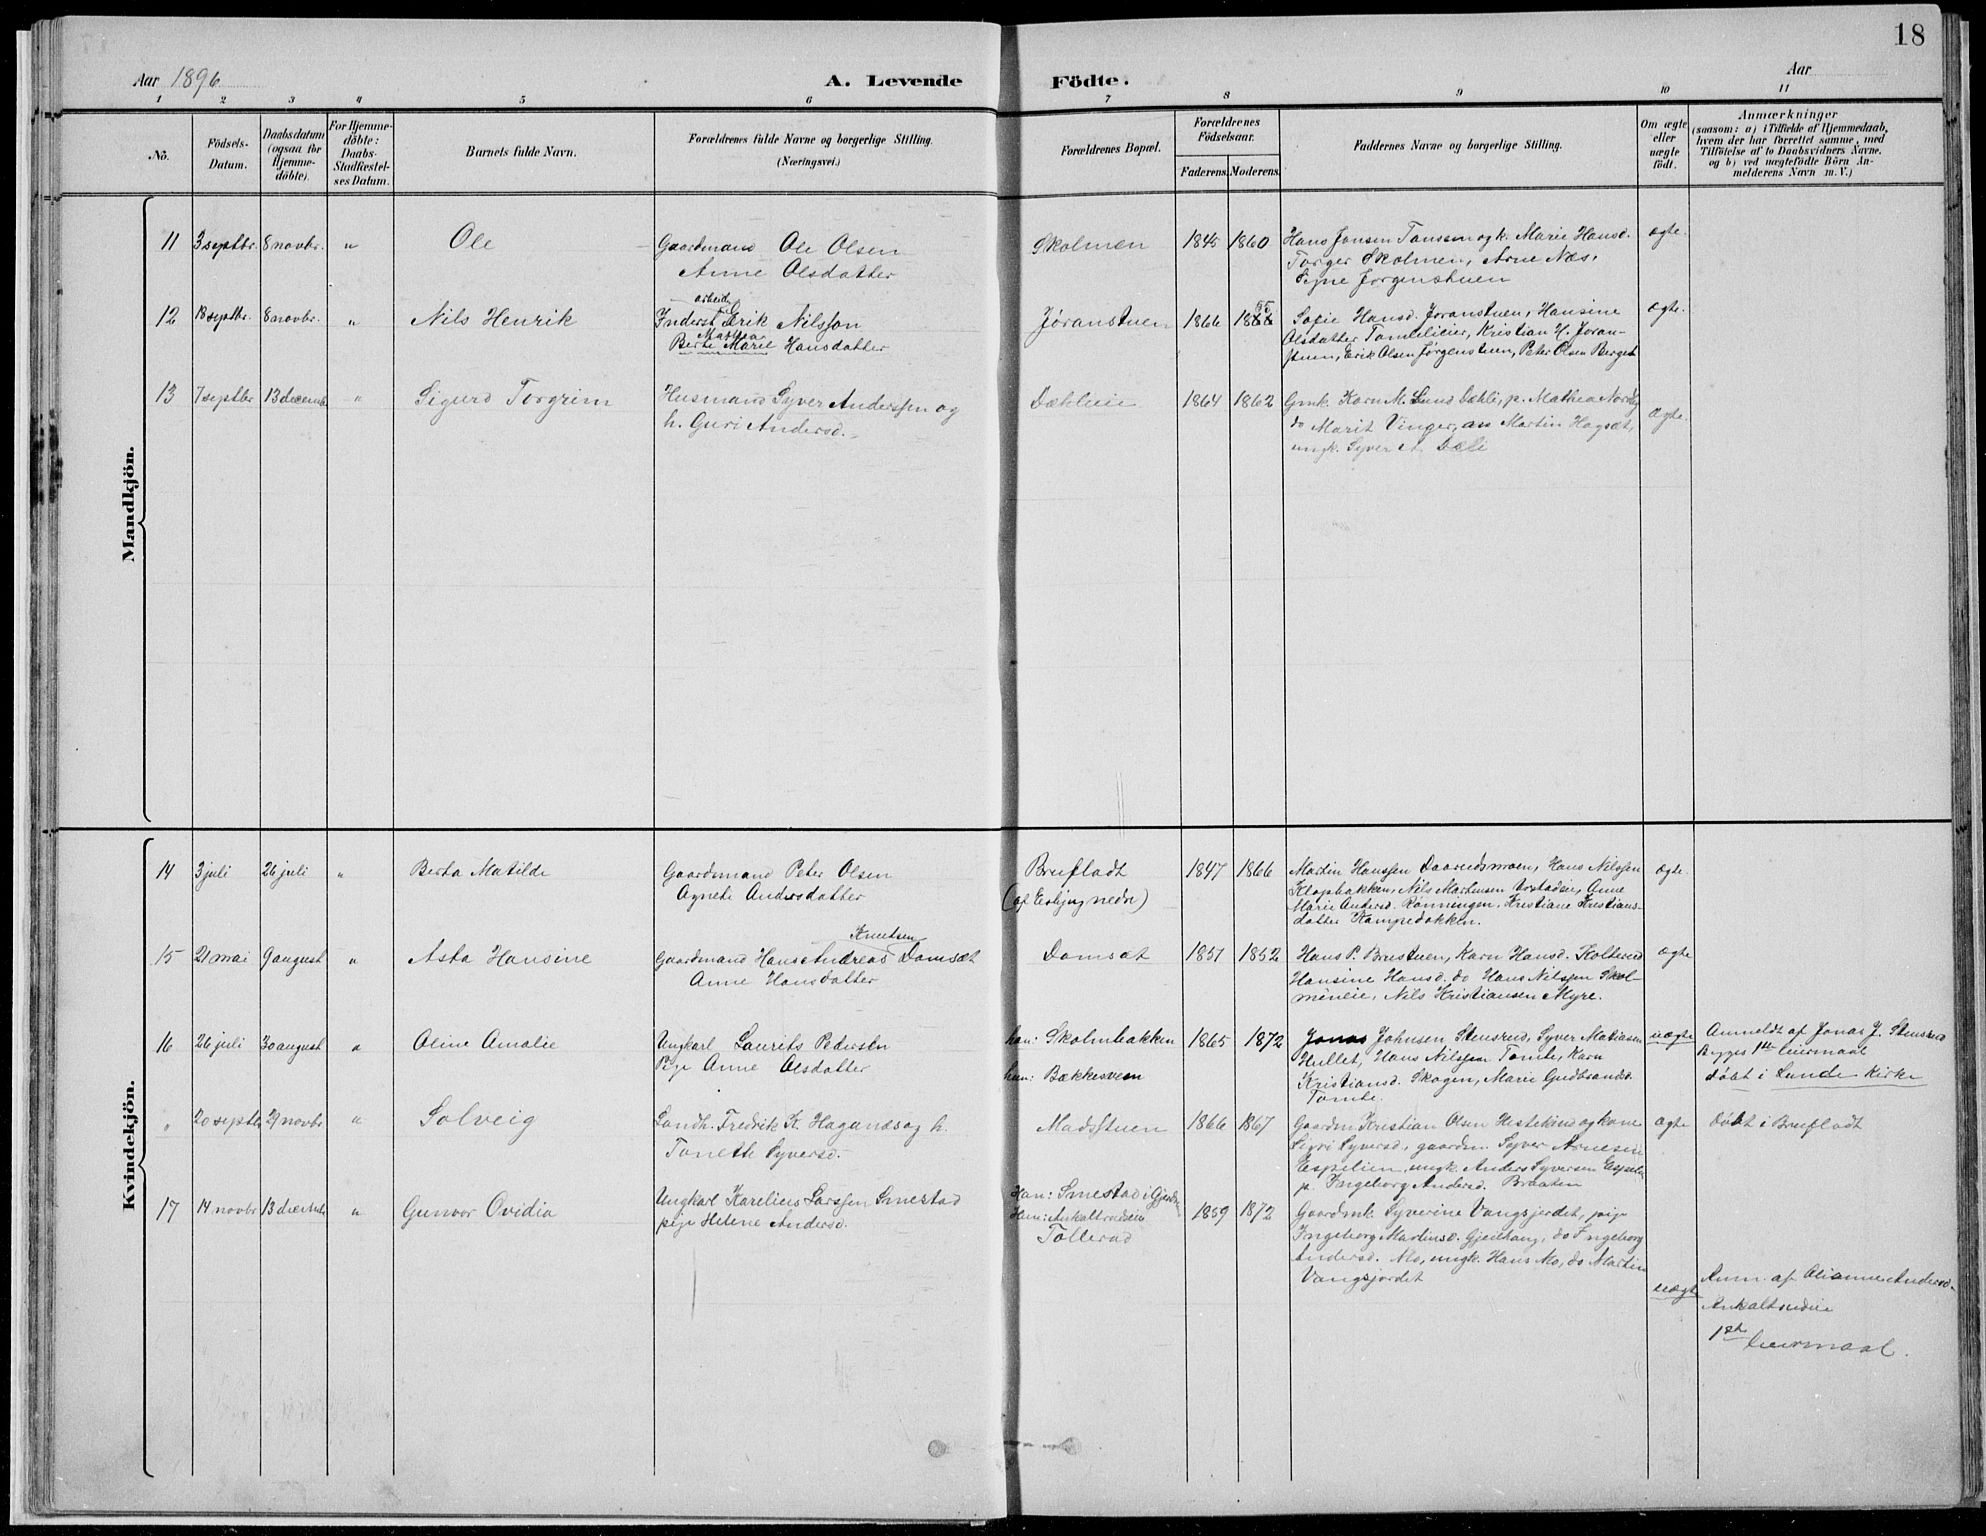 18
Aar 1896
A. Levende Födte.
Aar
1 2 3 4 5 6 7 8 9 10 11
No.
Födsels-Datum.
Daabsdatum (ogsaa for Hjemme-döbte).
For Hjemme-döbte: Daabs-Stadfæstel-ses Datum.
Barnets fulde Navn.
Forældrenes fulde Navne og borgerlige Stilling.
(Næringsvei.)
Forældrenes Bopæl.
Forældrenes Födselsaar.
Faderens. Moderens.
Faddernes Navne og borgerlige Stilling.
Om ægte eller uægte født.
Anmærkninger
(saasom: a) i Tilfælde af Hjemmedaab,
hvem der har forrettet samme, med
Tilföielse af to Daabsvidners Navne.
og b) ved uægtefödte Börn An-
melderens Navn m. V.)
Mandkjön.
11 3 septbr. 8 novbr. " Ole
Gaardmand Ole Olsen
Anne Olsdatter
Skolmen 1845 1860
Hans Jonsen Tonssen og k. Marie Hansd.
Torger Skolmen, Arne Næs,
Signe Jørgenstuen
ægte.
12 18 septbr. 8 novbr. " Nils Henrik
arbeid
Inderst Erik Nilsson
Mathea
Berte Marie Hansdatter
Jøranstuen 1866
Sofie Hansd. Joranstuen, Hansine
Olsdatter Tomlieier, Kristian H. Joran-
stuen, Erik Olsen Jørgenstuen, Peter Olsen Berget
ægte.
13 7 septbr 13 decemb " Sigurd Torgrim
Husmand Syver Anderssen og
h. Guri Andersd.
Dæhlieie 1864 1862
Gmk. Karn M. Lund Dæhli, p. Mathea Nordby
do Marit Vinger, Martin Hagsæt,
ungk. Syver A. Dæli
ægte.
Kvindekjön.
14 3 juli 26 juli " Berta Matilde
Gaardmand Peter Olsen
Agnete Andersdatter
Brufladt
(af Espljug nedre)
1847 1866
Martin Hanssen Daarudsmoen, Hans Nilssen
Klopbakken, Nils Martinsen, Anne
Marie Andersd. Rønningen, Kristiane Kristians-
datter Kampedokken.
ægte
15 21 mai 9 august " Asta Hansine
Knutsen
Gaardmand Hans Andreas Domsæt
Anne Hansdatter
Domsæt 1851 1852
Hans P. Brustuen, Karn Hansd. Kolterud
Hansine Hansd. do Hans Nilssen Skol-
meneie, Nils Kristiansen Myre.
ægte
16 26 juli 30 august " Oline Amalie
Ungkarl Laurits Pedersen
Pige Anne Olsdatter
han: Skolmbakken
hun: Bækkesveen
1865 1872
Jonas Johnsen Stensrud, Syver Matiasen
Hullet, Hans Nilssen Tomte, Karn
Kristiansd. Skogen, Marie Gudbrandsd.
Tomte.
uægte
Anmeldt af Jonas J. Stensrud
Begges 1ste leiermaal
døbt i Lunde kirke
" 20 septbr 29 novbr " Solveig
Landh. Fredrik K. Hagands og h.
Toneth Syversd.
Madsstuen 1866 1867
Gaardm. Kristian Olsen Hestekind og kone
Sigri Syversd, gaardm. Syver Arnesen
Espelien, ungk. Anders Syversen Espelien
p. Ingeborg Andersd. Braaten
ægte
Døbt i Brufladt
17 14 novbr 13 decembr " Gunvor Ovidia
Ungkarl Karelius Larssen Smestad
pige Helene Andersd.
Han: Smestad i Gjerdr
Hun: Ankaltrudeie
Tollerud
1859 1872
Gaardmk. Syverine Vangsjordet, pige
Ingeborg Martinsd. Gjeilhang, do Ingeborg
Andersd. Mo, ungk. Hans Mo, do Martin
Vangsjordet
uægte
Anm. af Olianne Andersd.
Ankaltrudeie
1ste leiermaal.